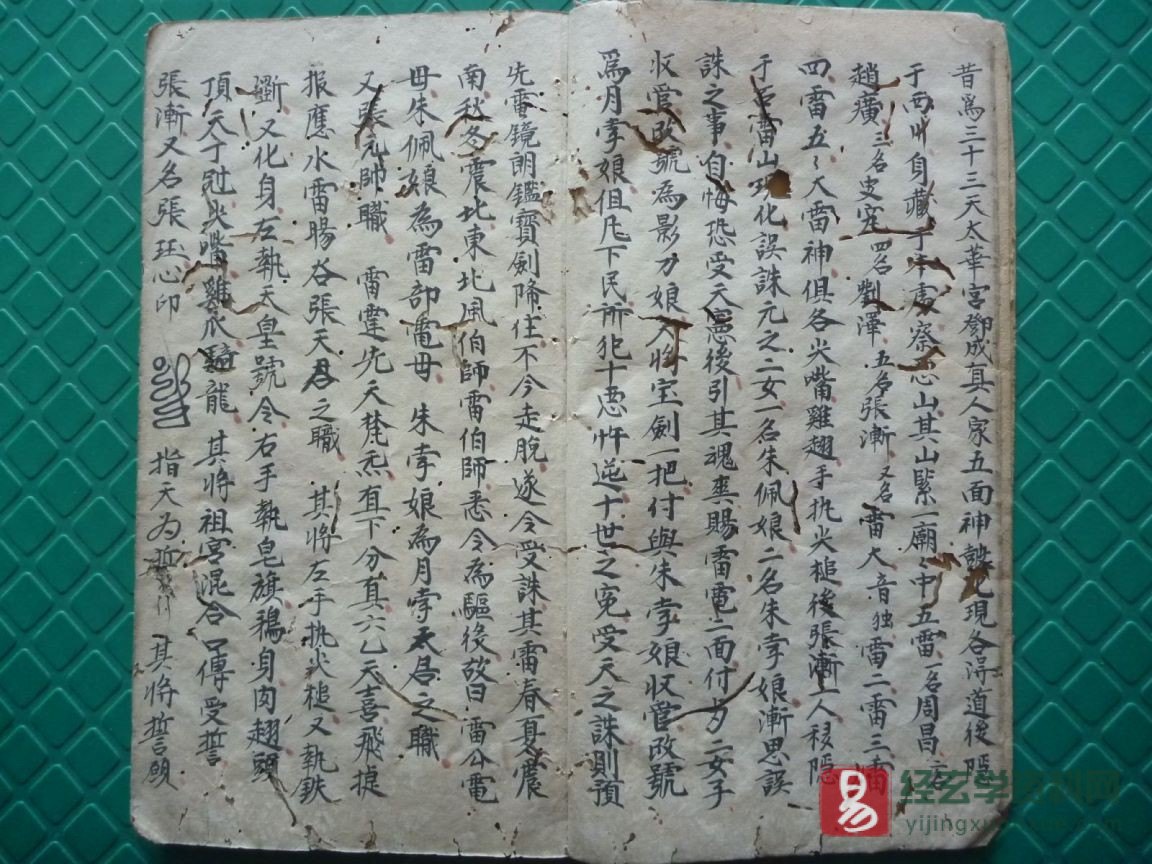 昔爲三十三天太華宮鄧成真人家五面神談見現各得道後
于西川自藏于處察山其山緊一廟々中五雷一名周昌二
趙廣三名史定四名劉澤五名張漸又名雷大音独雷二雷三雷
四雷五々大雷神俱各尖嘴雞翅手执火槌後張漸一人移
于雷山現化誤誅元之二女一名朱佩娘二名朱孛娘漸思誤
誅之事自悔恐受天憲後引其魂與賜雷電二面付为二女子
收管改號為影刀娘又將宝劍一把付與朱孛娘收管改號
爲月孛娘但凡下民所犯十恶忤逆十世之冤受天之誅則預
先雷鏡朗鑑寶劍降住不令走脫遂令受誅其雷春夏震
南秋冬震北東北風伯師雷伯師悉令為驅後敬曰雷公電
母朱佩娘為雷部電母 朱孛娘為月孛太君之職
又張元帥職 雷霆先天梵炁直下分真六乙天喜飛捷
报應水雷暘谷張天君之職 其將左手执火槌又執鉄
又化身左執天皇號令右手執皂旗鴉身肉翅頭
頂天丁冠火嘴雞爪騎龍 其將祖宮混合口傳受誓
張漸又名張珏心印 指天为 其將誓願
易
经玄学资料网
yijingxu